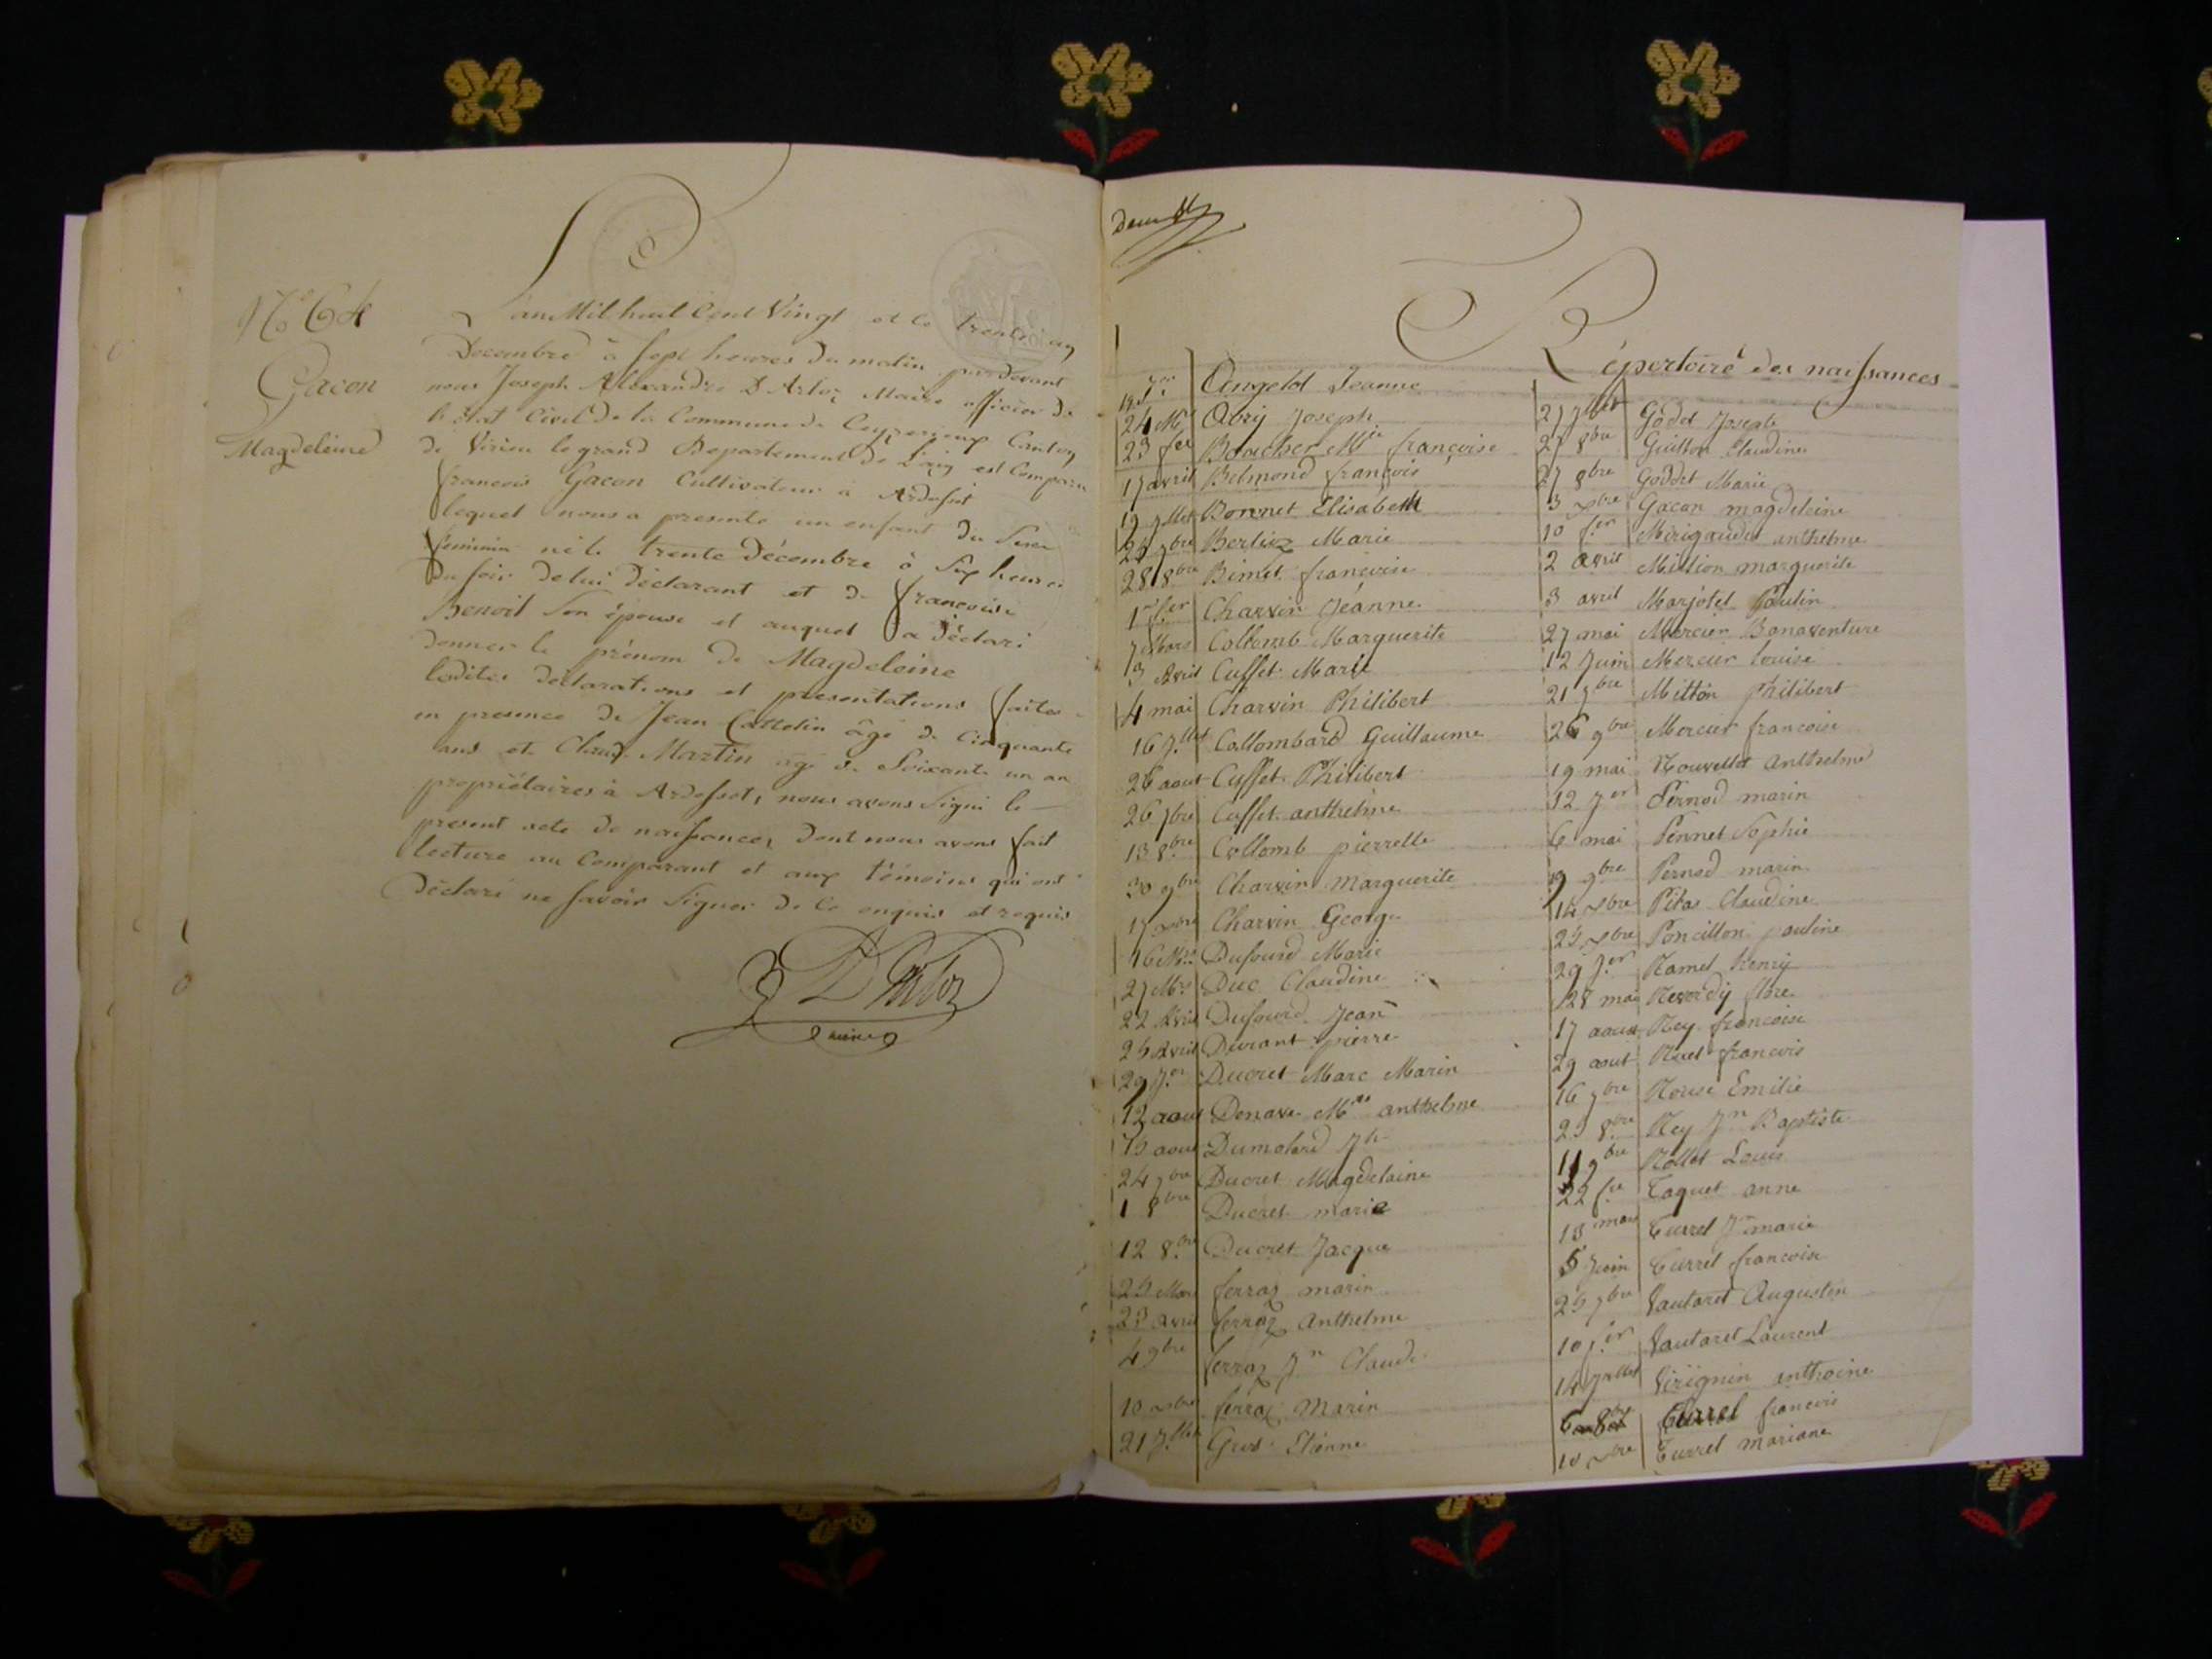 N.o 64
Gacon
Magdeleine
L'an Mil huit Cent Vingt et le trente un
Decembre à sept heures du matin pardevant
nous Joseph Alexandre D'Arloz Maire officier de
l'Etat Civil de la Commune de Ceyzerieux Canton
de Virieu le grand Departement de L'ain est Comparu
francois Gacon Cultivateur à Ardosset
lequel nous a presenté un enfant du Sexe
féminin né le trente Décembre à Six heures
du soir de lui Déclarant et de françoise
Benoit Son épouse et auquel a déclaré
donner le prénom de Magdeleine
lesdites déclarations et presentations faites
en presence de Jean Cattelin âgé de Cinquante
ans et Claude Martin agé de Soixante un an
propriétaires à Ardosset, nous avons Signé le
present acte de naissance, dont nous avons fait
lecture au Comparant et aux témoins qui ont
Déclaré ne savoir Signer de ce enquis et requis
D'Arloz
maire
Répertoire des naissances
19 Jer Angelot Jeanne
24 Ms Abry Joseph
23 fer Boucher Mie françoise
17 avril Belmond françois
19 Jllet Bonnet Elisabeth
25 9bre Berlioz Marie
28 8bre Bimet francoise
1er fer Charvin Jeanne
7 Mars Collomb Marguerite
3 Avril Cusset Marie
4 mai Charvin Philibert
16 Jllet Collombard Guillaume
26 aout Cusset Philibert
26 7bre Cusset anthelme
13 8bre Collomb pierrette
30 9bre Charvin Marguerite
17 xbre Charvin George
16 Ms Dufourd Marie
27 Ms Duc Claudine
22 Avril Dufourd Jean
25 Avril Durant pierre
29 Jer Ducret Marc Marin
12 aout Donave Mie anthelme
15 aout Dumolard Jh
24 7bre Ducret Magdelaine
1 8bre Ducret marie
12 8bre Ducret Jacque
25 Mars ferraz marin
23 avril ferraz Anthelme
4 9bre ferraz Jn Claude
10 xbre ferraz Marin
21 Jllet Gros Etienne
27 Jllet Godet Joseph
27 8bre Guitton Claudine
27 8bre Goddet Marie
3 xbre Gacon magdeleine
10 fer Mirigaudet anthelme
2 avril Million marguerite
3 avril Marjotet Paulin
27 mai Mercier Bonaventure
12 Juin Mercier Louise
21 7bre Mitton Philibert
26 9bre Mercier francoise
19 mai Nouvellet Anthelme
12 Jer Pernod marin
6 mai Pennet Sophie
19 9bre Pernod marin
14 xbre Pitas Claudine
25 xbre Poncillon pauline
29 Jer Ramel henry
28 mai Reverdy
17 aout Rey francoise
29 aout Ruet francois
16 7bre Rouse Emilie
29 8bre Rey Jn Baptiste
11 9bre Rollet Louis
22 fer Taquet anne
13 mars Turrel Jn marie
5 Juin Turrel francoise
25 7bre Vautaret Augustin
10 fer Vautaret Laurent
14 Jllet Virignin anthoine
Turrel francois
10 xbre Turrel mariane